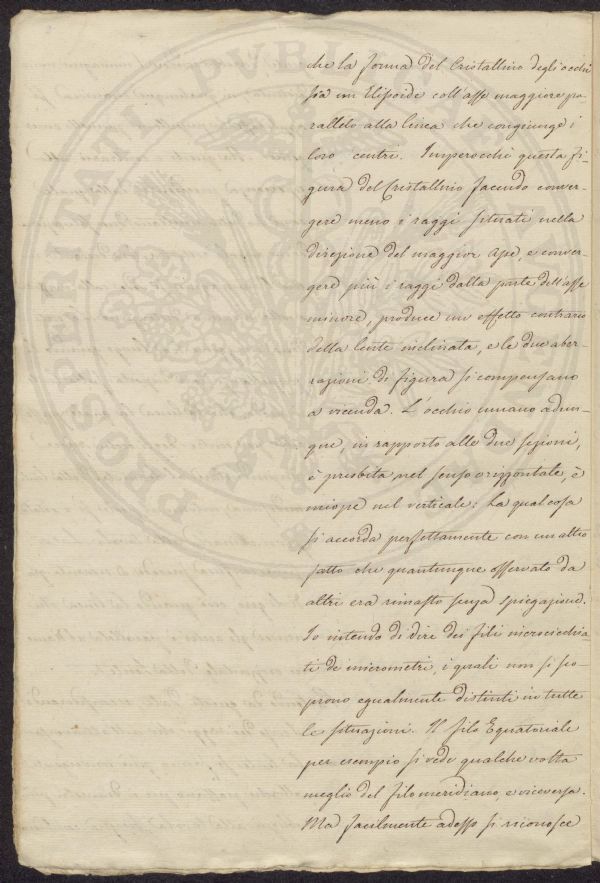 che la forma del Cristallino degli occhi
sia un Elissoide coll'asse maggiore pa-
rallelo alla linea che congiunge i
loro centri. Imperocchè questa fi-
gura del Cristallino facendo conver-
gere meno i raggi situati nella
direzione del maggior Asse, e conver-
gere più i raggi dalla parte dell'asse
minore, produce un effetto contrario
della lente inclinata, e le due aber-
razioni di figura si compensano
a vicenda. L'occhio umano adun-
que, in rapporto alle due sezioni,
è presbita nel senso orizzontale, è
miope nel verticale: La qual cosa
si accorda perfettamente con un altro
fatto che quantunque osservato da
altri era rimasto senza spiegazione.
Io intendo di dire dei fili
ti de micrometri, i quali non si sco-
prono egualmente distinti in tutte
le situazioni. Il filo Equatoriale
per esempio si vede qualche volta
meglio del filo meridiano, e viceversa.
Ma facilmente adesso si riconosce
PROSPERITATI PUBLI